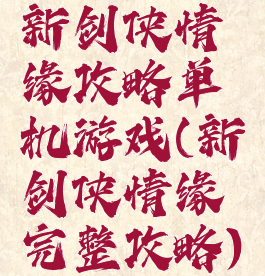 新剑侠情
缘攻略单
机游戏(新
剑侠情缘
完整攻略)